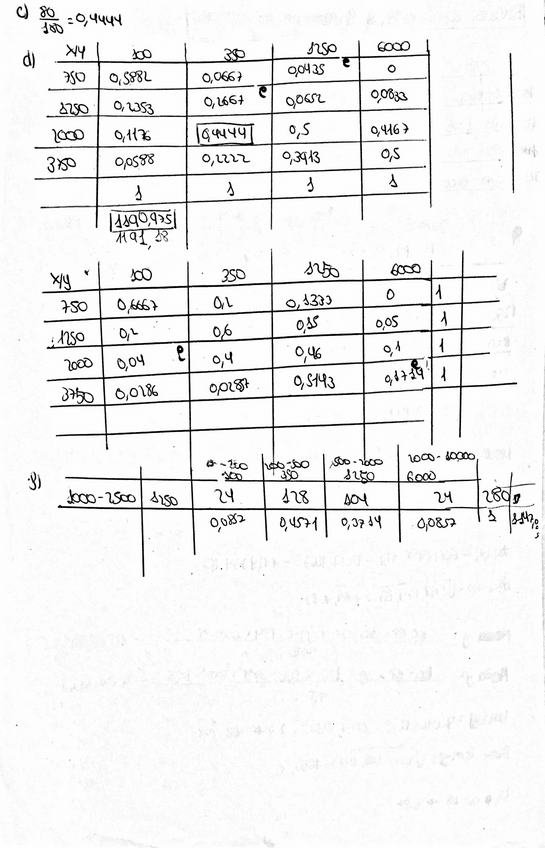 c) 80/180 = 0,4444
d)
X/Y 100 350 1250 6000
750 0,5882 0,0667 0,0435 0
1250 0,2353 0,2667 0,0652 0,0833
2000 0,1176 0,4444 0,5 0,4167
3750 0,0588 0,2222 0,3913 0,5
1 1 1 1
1190,975
1191,18
X/Y 100 350 1250 6000
750 0,6667 0,2 0,1333 0 1
1250 0,2 0,6 0,15 0,05 1
2000 0,04 0,4 0,46 0,1 1
3750 0,0286 0,0287 0,5143 0,1714 1
2000-10000
100 350 1250 6000
1000-2500 1250 24 128 104 24 280
0,0857 0,4571 0,3714 0,0857 1